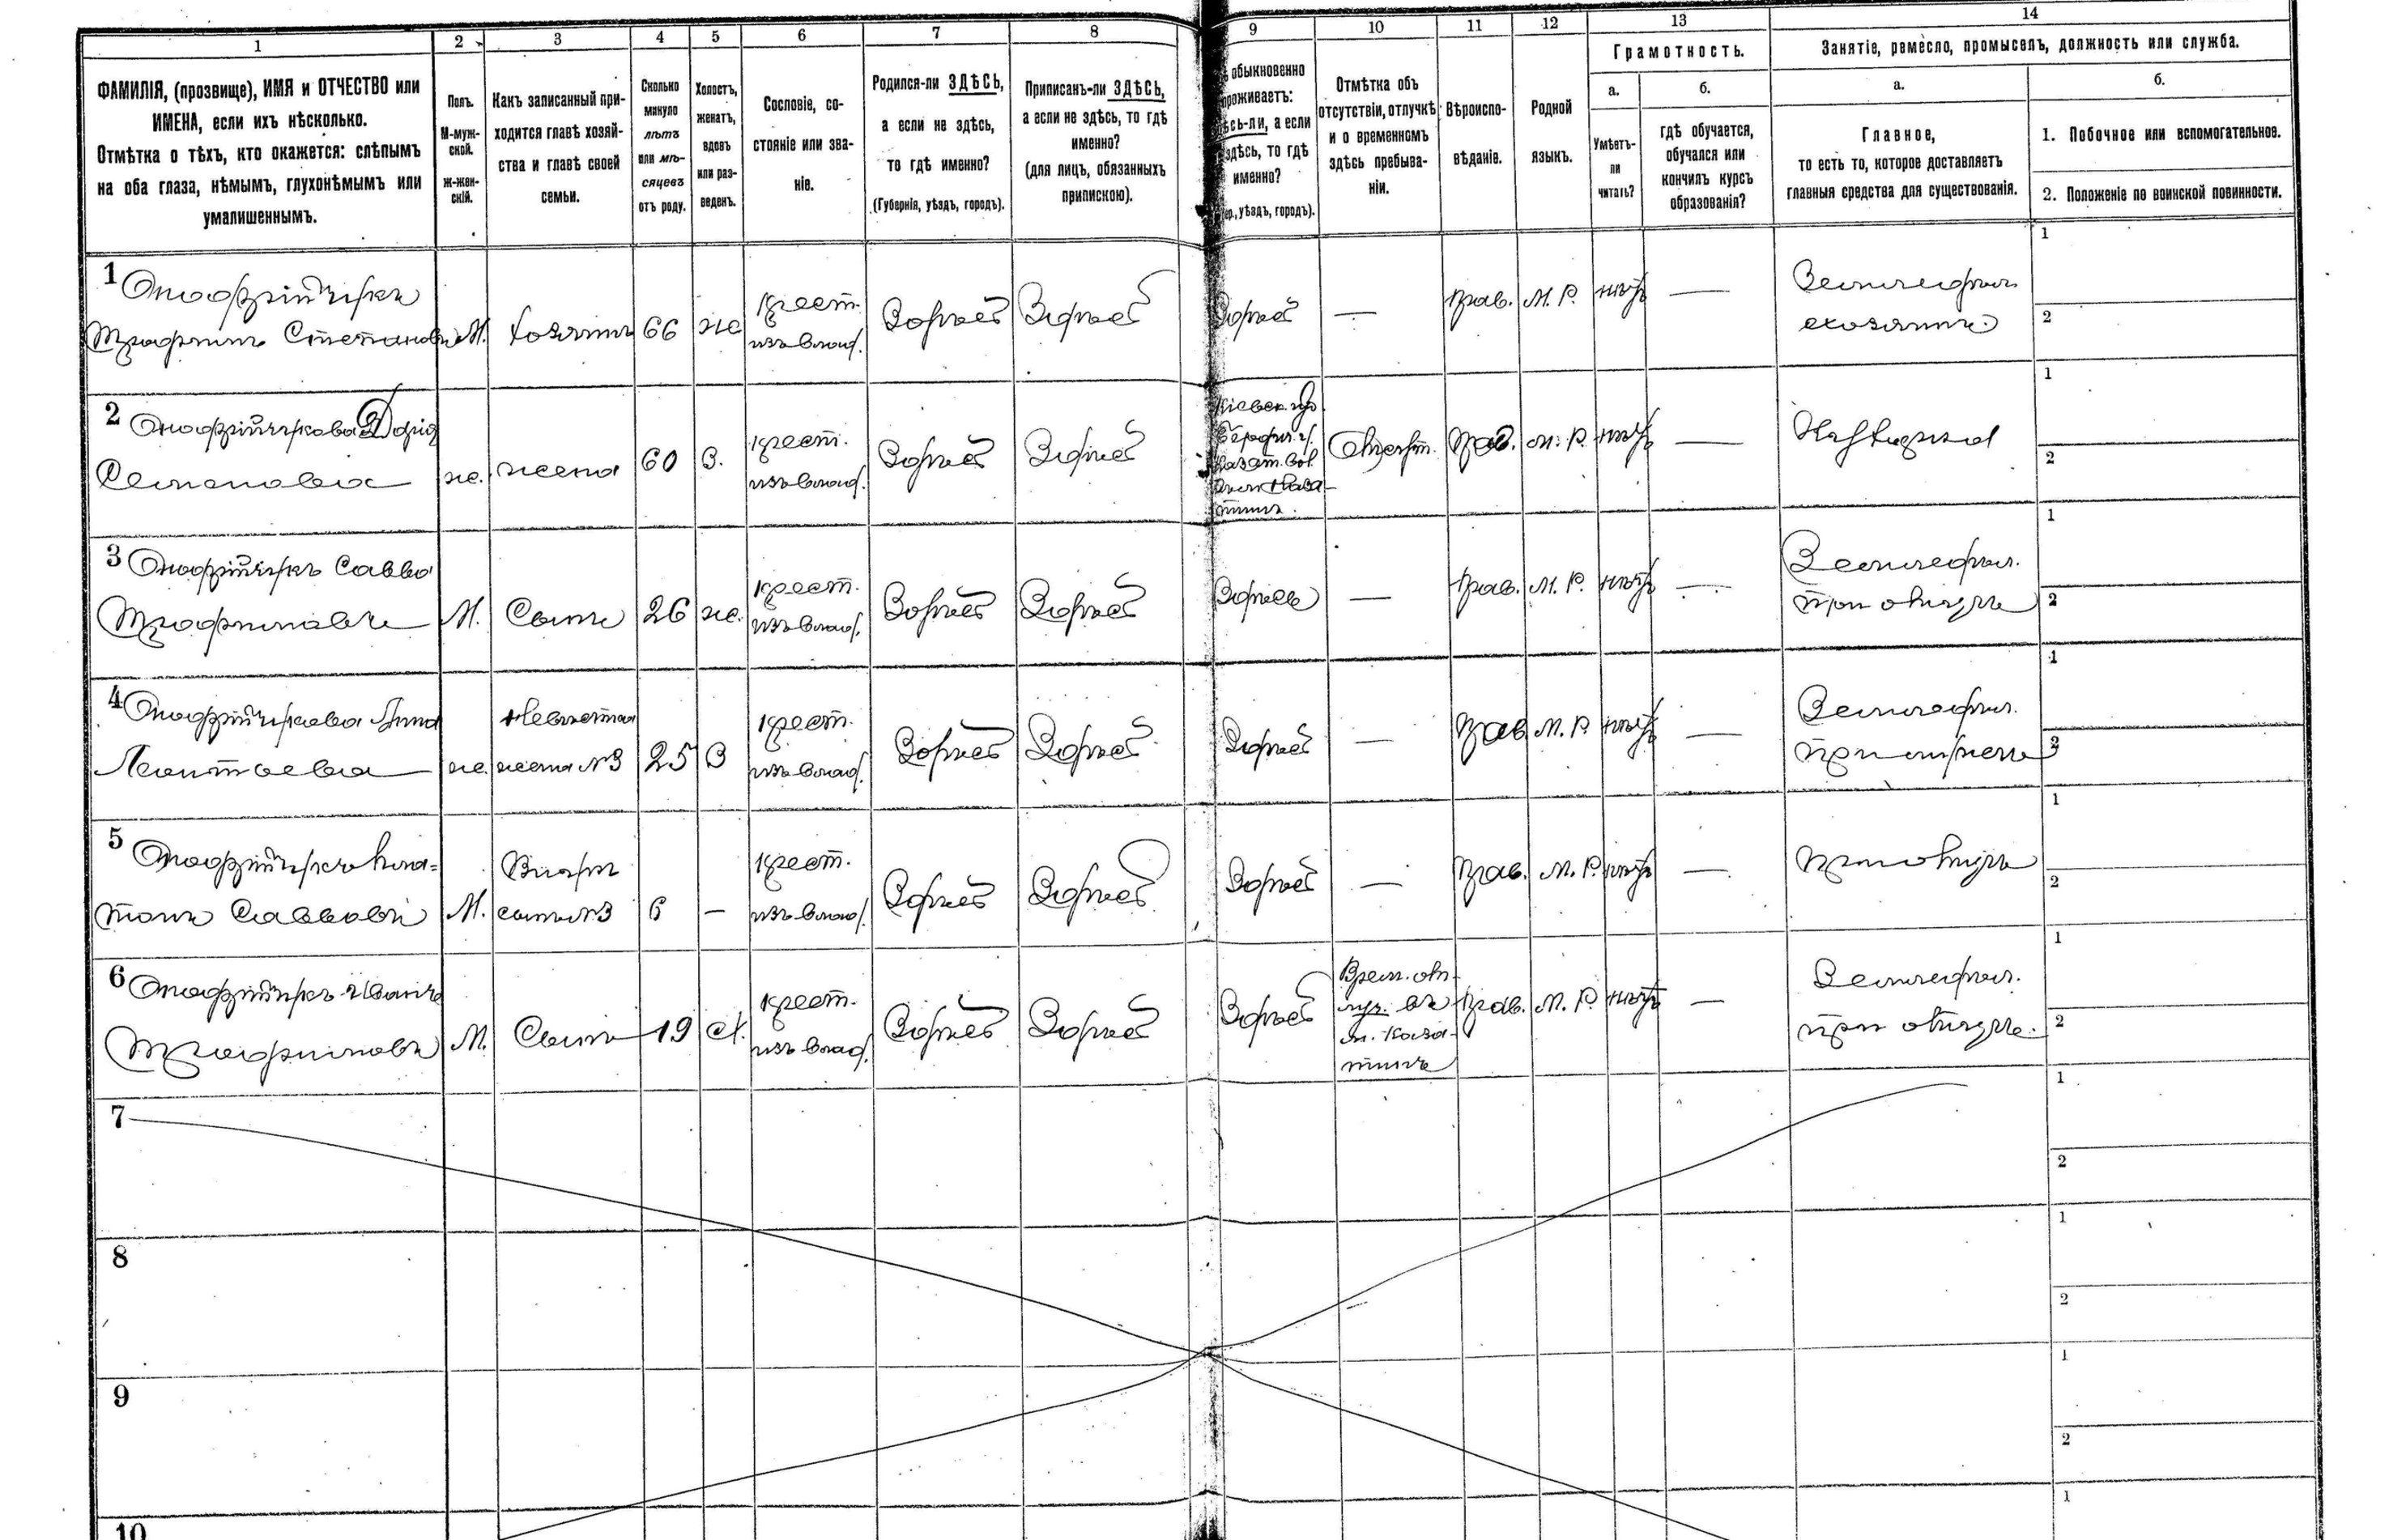 1 2 3 4 5 6 7 8 9 10 11 12 13 14
ФАМИЛІЯ, (прозвище), ИМЯ и ОТЧЕСТВО или
ИМЕНА, если ихъ нѣсколько.
Отмѣтка о тѣхъ, кто окажется: слѣпымъ
на оба глаза, нѣмымъ, глухонѣмымъ или
умалишеннымъ.
Полъ.
М-муж-
ской.
Ж-жен-
скій.
Какъ записанный при-
ходится главѣ хозяй-
ства и главѣ своей
семьи.
Сколько
минуло
лѣтъ
или мѣ-
сяцевъ
отъ роду.
Холостъ,
женатъ,
вдовъ
или раз-
веденъ.
Сословіе, со-
стояніе или зва-
ніе.
Родился-ли ЗДѢСЬ,
а если не здѣсь,
то гдѣ именно?
(Губернія, уѣздъ, городъ).
Приписанъ-ли ЗДѢСЬ,
а если не здѣсь, то гдѣ
именно?
(для лицъ, обязанныхъ
припискою).
обыкновенно
проживаетъ:
здѣсь-ли, а если
здѣсь, то гдѣ
именно?
уѣздъ, городъ).
Отмѣтка объ
отсутствіи, отлучкѣ
и о временномъ
здѣсь пребыва-
ніи.
Вѣроиспо-
вѣданіе.
Родной
языкъ.
Грамотность.
а.
Умѣетъ-
ли
читать?
б.
гдѣ обучается,
обучался или
кончилъ курсъ
образованія?
Занятіе, ремесло, промыселъ, должность или служба.
а.
Главное,
то есть то, которое доставляетъ
главныя средства для существованія.
б.
1. Побочное или вспомогательное.
2. Положеніе по воинской повинности.
1 Онофрійчукъ
Трофимъ Степановъ М. хозяинъ 66 же крест. Здѣсь Здѣсь Здѣсь — прав. М. Р. нѣтъ — Земледѣл.
изъ влад. хозяинъ
1
2
2 Онофрійчукова Дарія
Семеновна же. жена 60 З. крест. Здѣсь Здѣсь прав. М. Р. нѣтъ —
изъ влад.
Кіевск. губ.
1
2
3 Онофрійчукъ Савва
Трофимовичъ М. Сынъ 26 же. крест. Здѣсь Здѣсь Здѣсь — прав. М. Р. нѣтъ — Земледѣл.
изъ влад. при отцѣ
1
2
4 Онофрійчукова Анна
Леонтьева же. Невѣстка
жена №3 25 З крест. Здѣсь Здѣсь Здѣсь — прав. М. Р. нѣтъ — Земледѣл.
изъ влад. при мужѣ
1
2
5 Онофрійчукъ Пла-
тонъ Саввовъ М. Внукъ
сынъ №3 6 — крест. Здѣсь Здѣсь Здѣсь — прав. М. Р. нѣтъ — при отцѣ
изъ влад.
1
2
6 Онофрійчукъ Иванъ
Трофимовъ М. Сынъ 19 х. крест. Здѣсь Здѣсь Здѣсь прав. М. Р. нѣтъ — Земледѣл.
изъ влад. при отцѣ.
Врем. от-
луч. въ
м. Каза-
тинъ
1
2
7
1
2
8
1
2
9
1
2
10
1